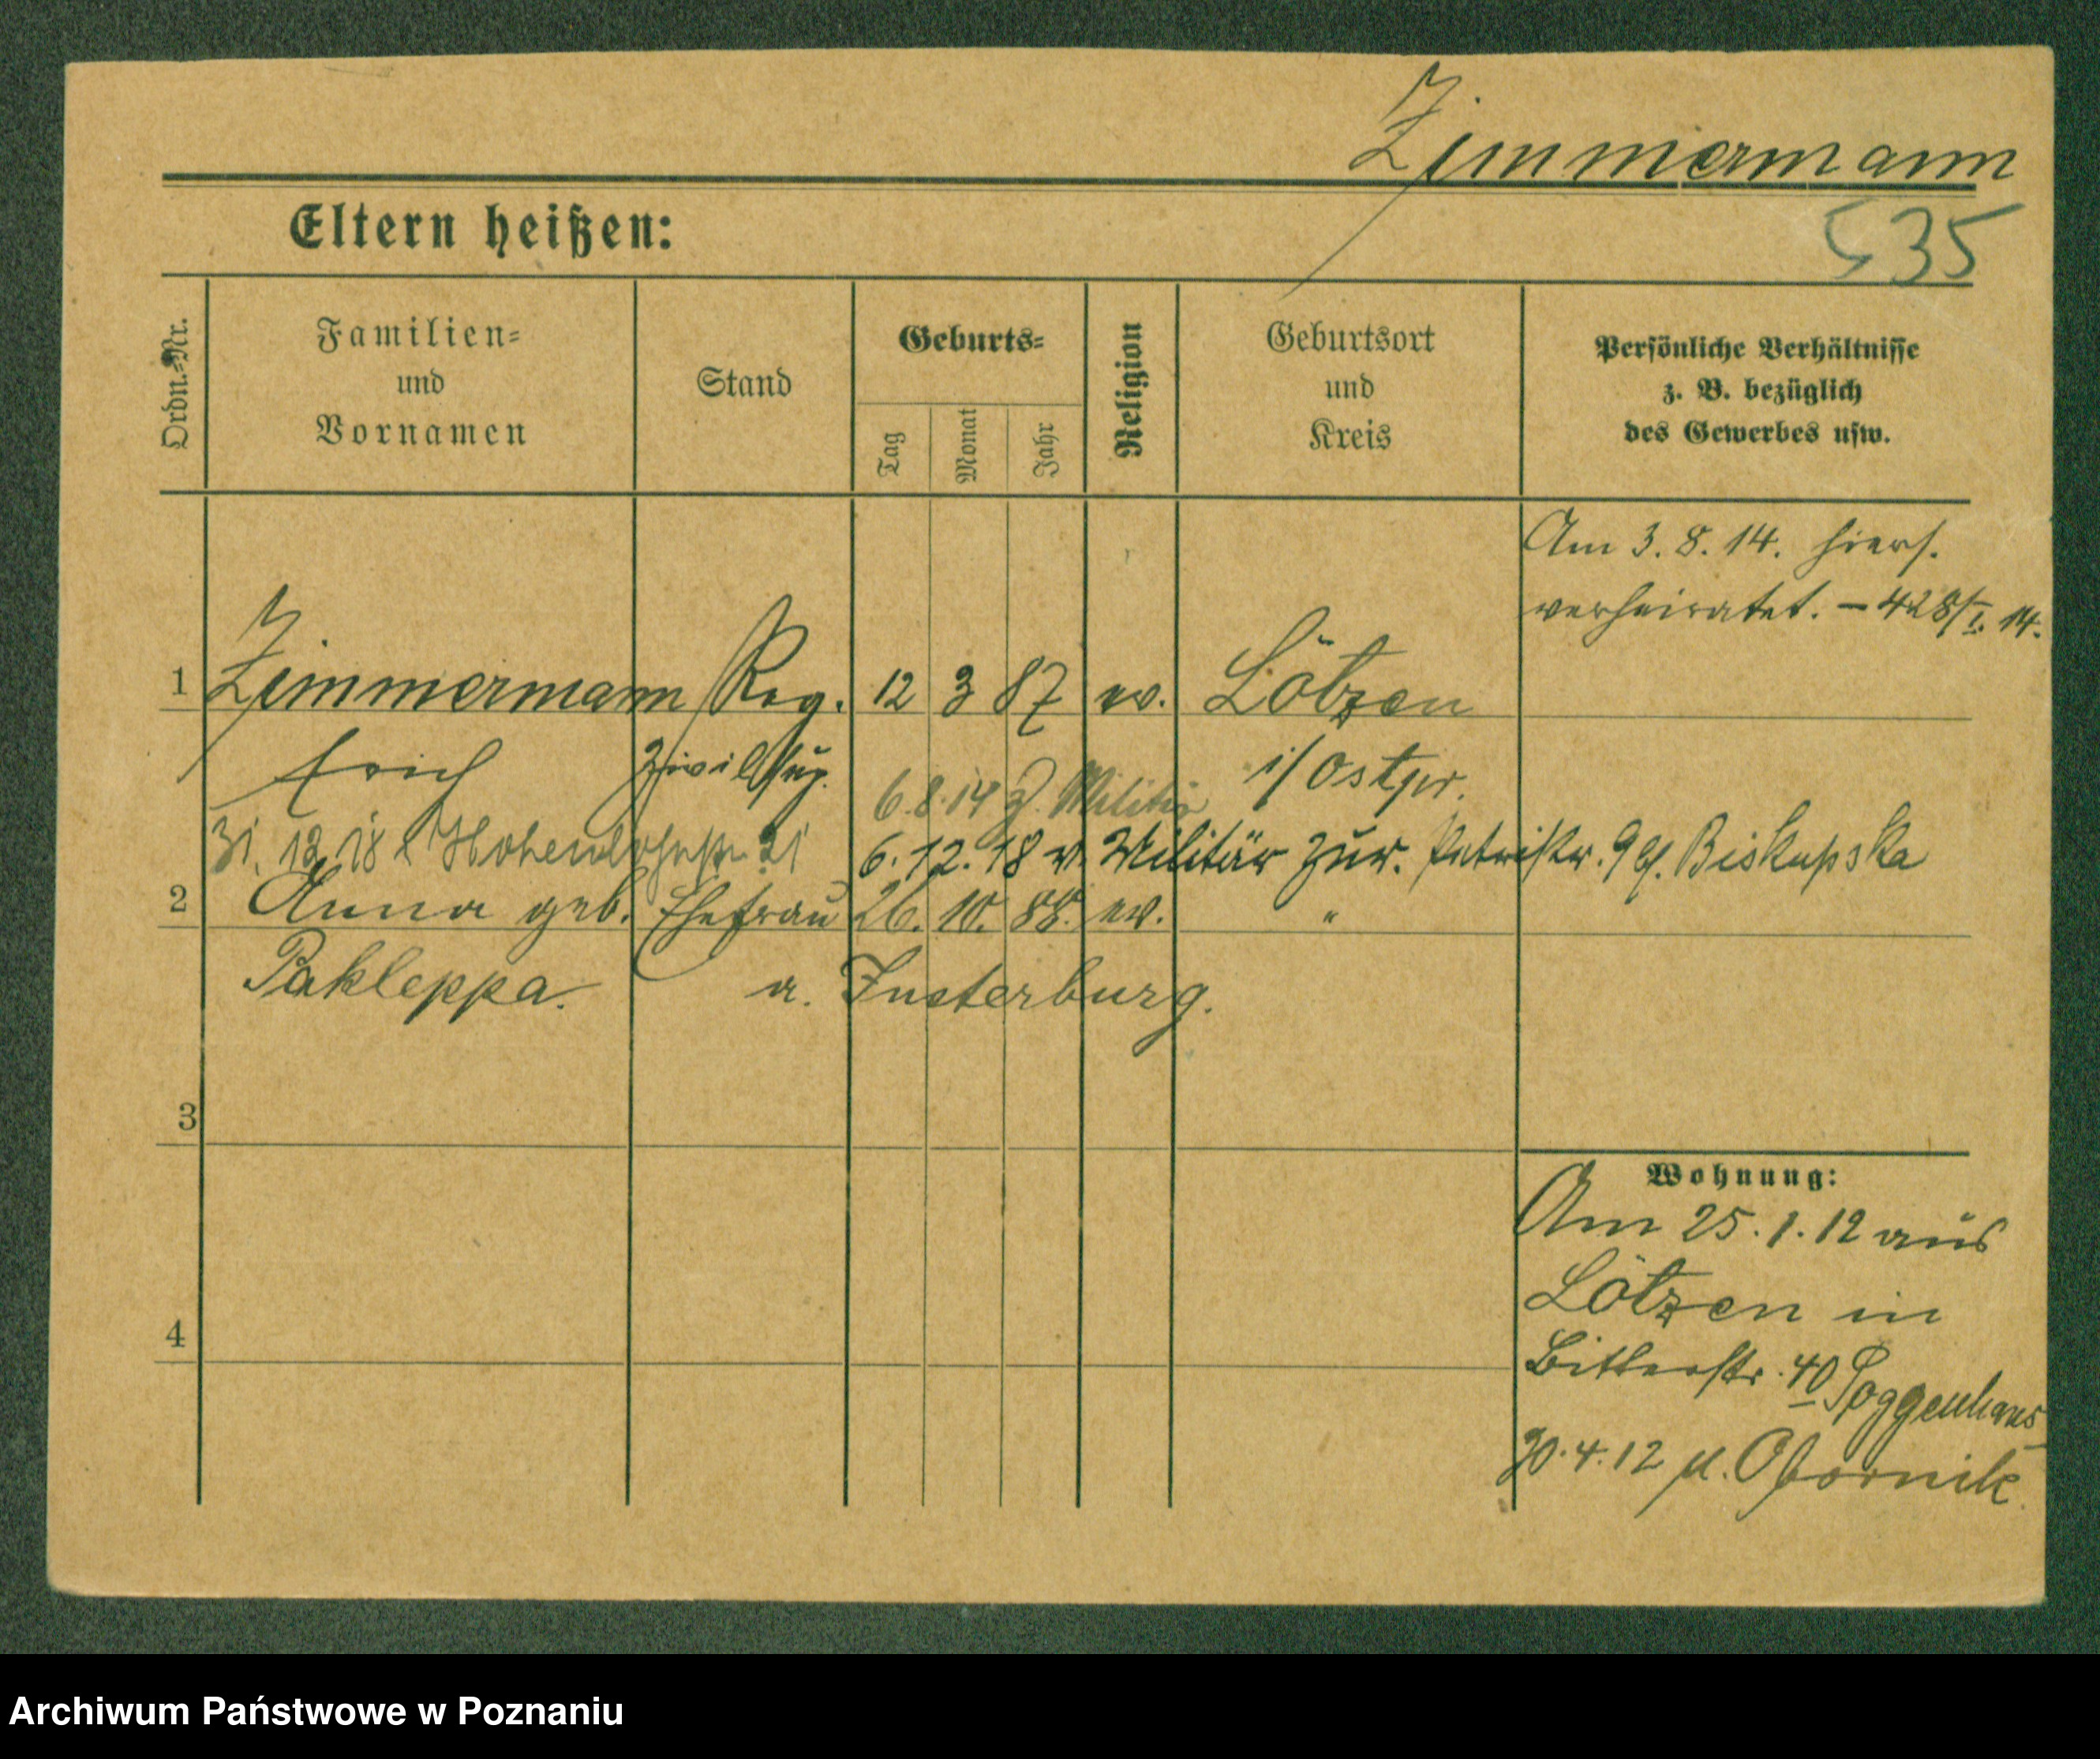 Zimmermann
Eltern heißen:
535
Ordn.-Nr.
Familien-
und
Vornamen
Stand
Geburts-
Tag
Monat
Jahr
Religion
Geburtsort
und
Kreis
Persönliche Verhältnisse
z. B. bezüglich
des Gewerbes usw.
Am 3. 8. 14. hiers.
verheiratet. – 428/I. 14.
1 Zimmermann Reg. 12 3 87 ev. Lötzen
Erich Zivilsup. i/Ostpr.
6.8.14 z. Militär
31. 12. 18 Hohenlohestr. 21
6. 12. 18 v. Militär zur. Petristr. 9 bf. Biskupska
2 Anna geb. Ehefrau 26. 10. 88. ev. "
Pakleppa. a. Insterburg.
3
Wohnung:
Am 25. 1. 12 aus
Lötzen in
4
Bitterstr. 40 Poggenhans
30. 4. 12 n. Obornik
Archiwum Państwowe w Poznaniu